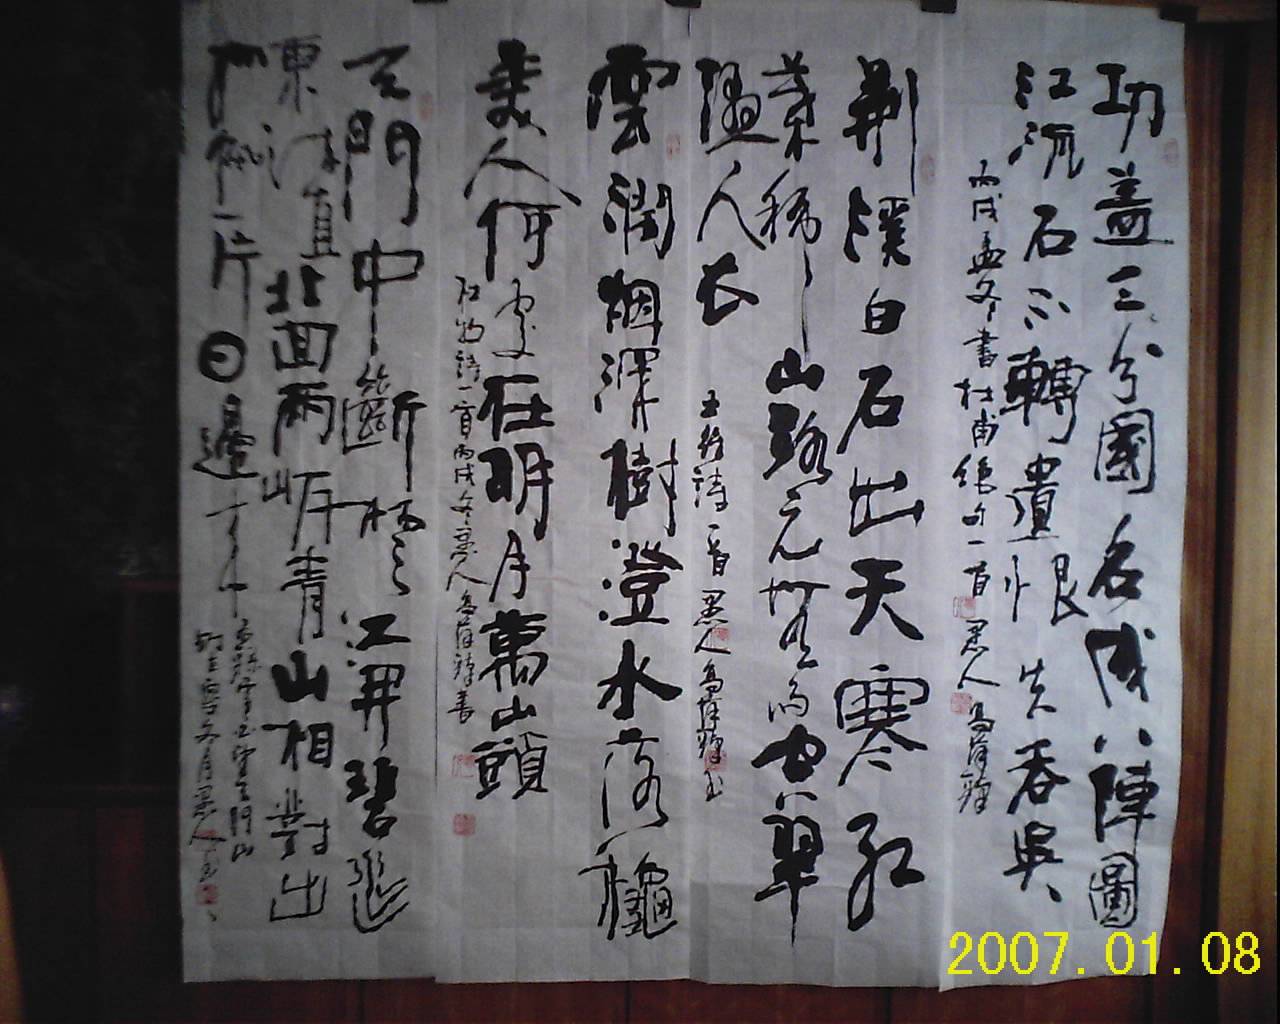 功盖三分國名成八陣圖
江流石不轉遺恨失吞吳
丙戌孟冬書杜甫絕句一首 愚人
荆溪白石出天寒紅
葉稀山路元無雨空翠
濕人衣
王維詩一首 愚人
雲濶烟深樹澄水落龝
美人何處在明月萬山頭
杜牧詩一首丙戌冬愚人書
天門中斷楚江開碧
東流直北囬兩岸青山相對出
孤帆一片日邊來
望天門山
冬月愚人書
2007.01.08